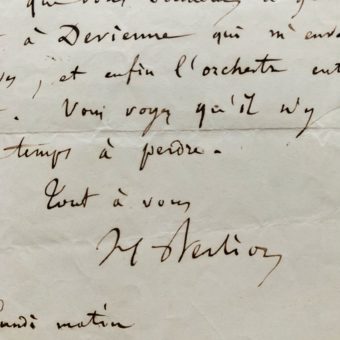 que vous
à Devienne qui m'env
, et enfin l'orchestre ent
. Vous voyez qu'il n'y
temps à perdre.
Tout à vous
H Berlioz
lundi matin